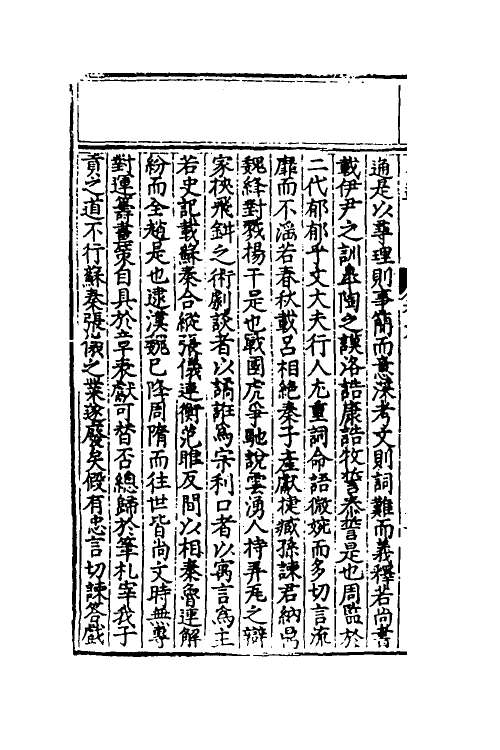 通是以尋理則事簡而意深考文則詞難而義釋若尚書
載伊尹之訓臯陶之謨洛誥康誥牧誓泰誓是也周監於
二代郁郁乎文大夫行人尤重詞命語微婉而多切言流
靡而不淫若春秋載呂相絕秦子產獻捷臧孫諫君納鼎
魏絳對戮楊干是也戰國虎爭馳說雲湧人持弄丸之辯
家挾飛鉗之術劇談者以譎誑為宗利口者以寓言為主
若史記載蘇秦合縱張儀連衡范雎反間以相秦魯連解
紛而全趙是也逮漢魏已降周隋而往世皆尚文時無專
對運籌畫策自具於章表獻可替否總歸於筆札宰我子
貢之道不行蘇秦張儀之業遂廢矣假有忠言切諫荅戲